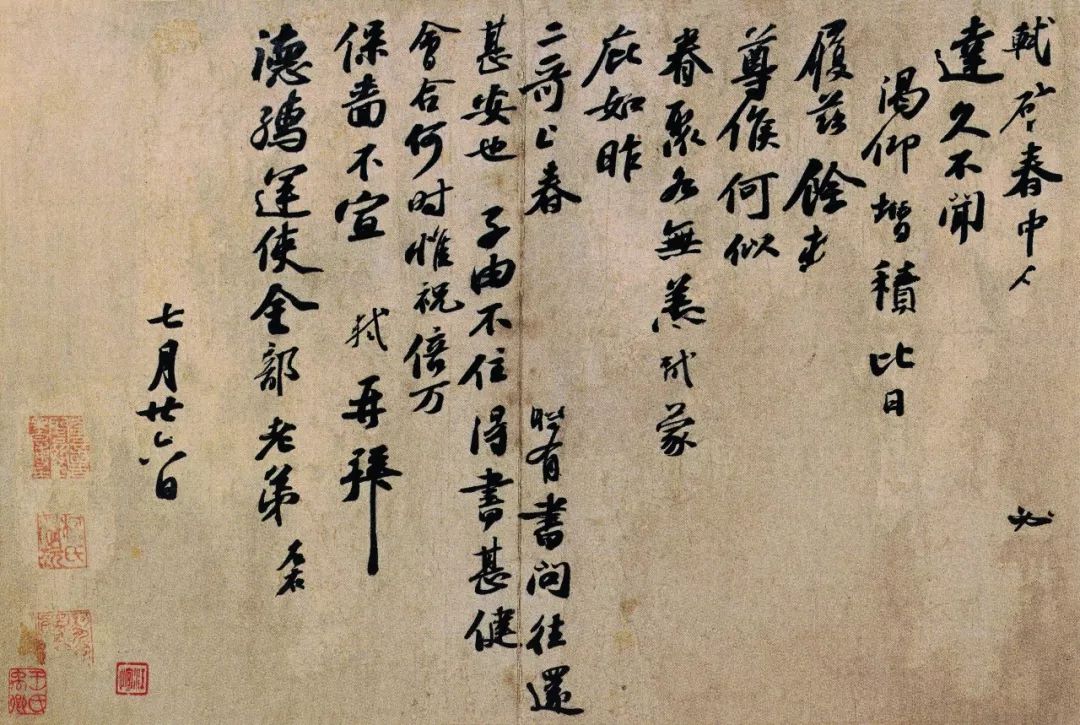 軾啓春中人 必
達久不聞
渴仰增積比日
履茲餘
尊候何似
眷聚各無恙軾蒙
庇如昨
二哥上春 時有書問往還
甚安也子由不住得書甚健
會合何時惟祝倍万
保嗇不宣軾再拜
德孺運使金部老弟左右
七月廿六日